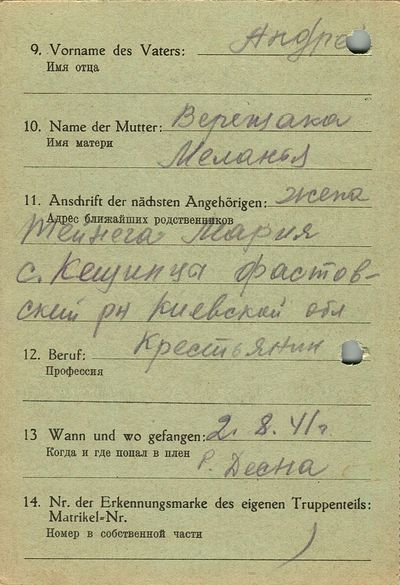 9. Vorname des Vaters: Андрей
Имя отца
10. Name der Mutter: Верещака
Имя матери
Меланья
11. Anschrift der nächsten Angehörigen: жена
Адрес ближайших родственников
Мария
с. Кещинцы Фастов-
ский рн Киевской обл
12. Beruf: Крестьянин
Профессия
13 Wann und wo gefangen: 2. 8. 41г.
Когда и где попал в плен
р. Десна
14. Nr. der Erkennungsmarke des eigenen Truppenteils:
Matrikel-Nr.
Номер в собственной части